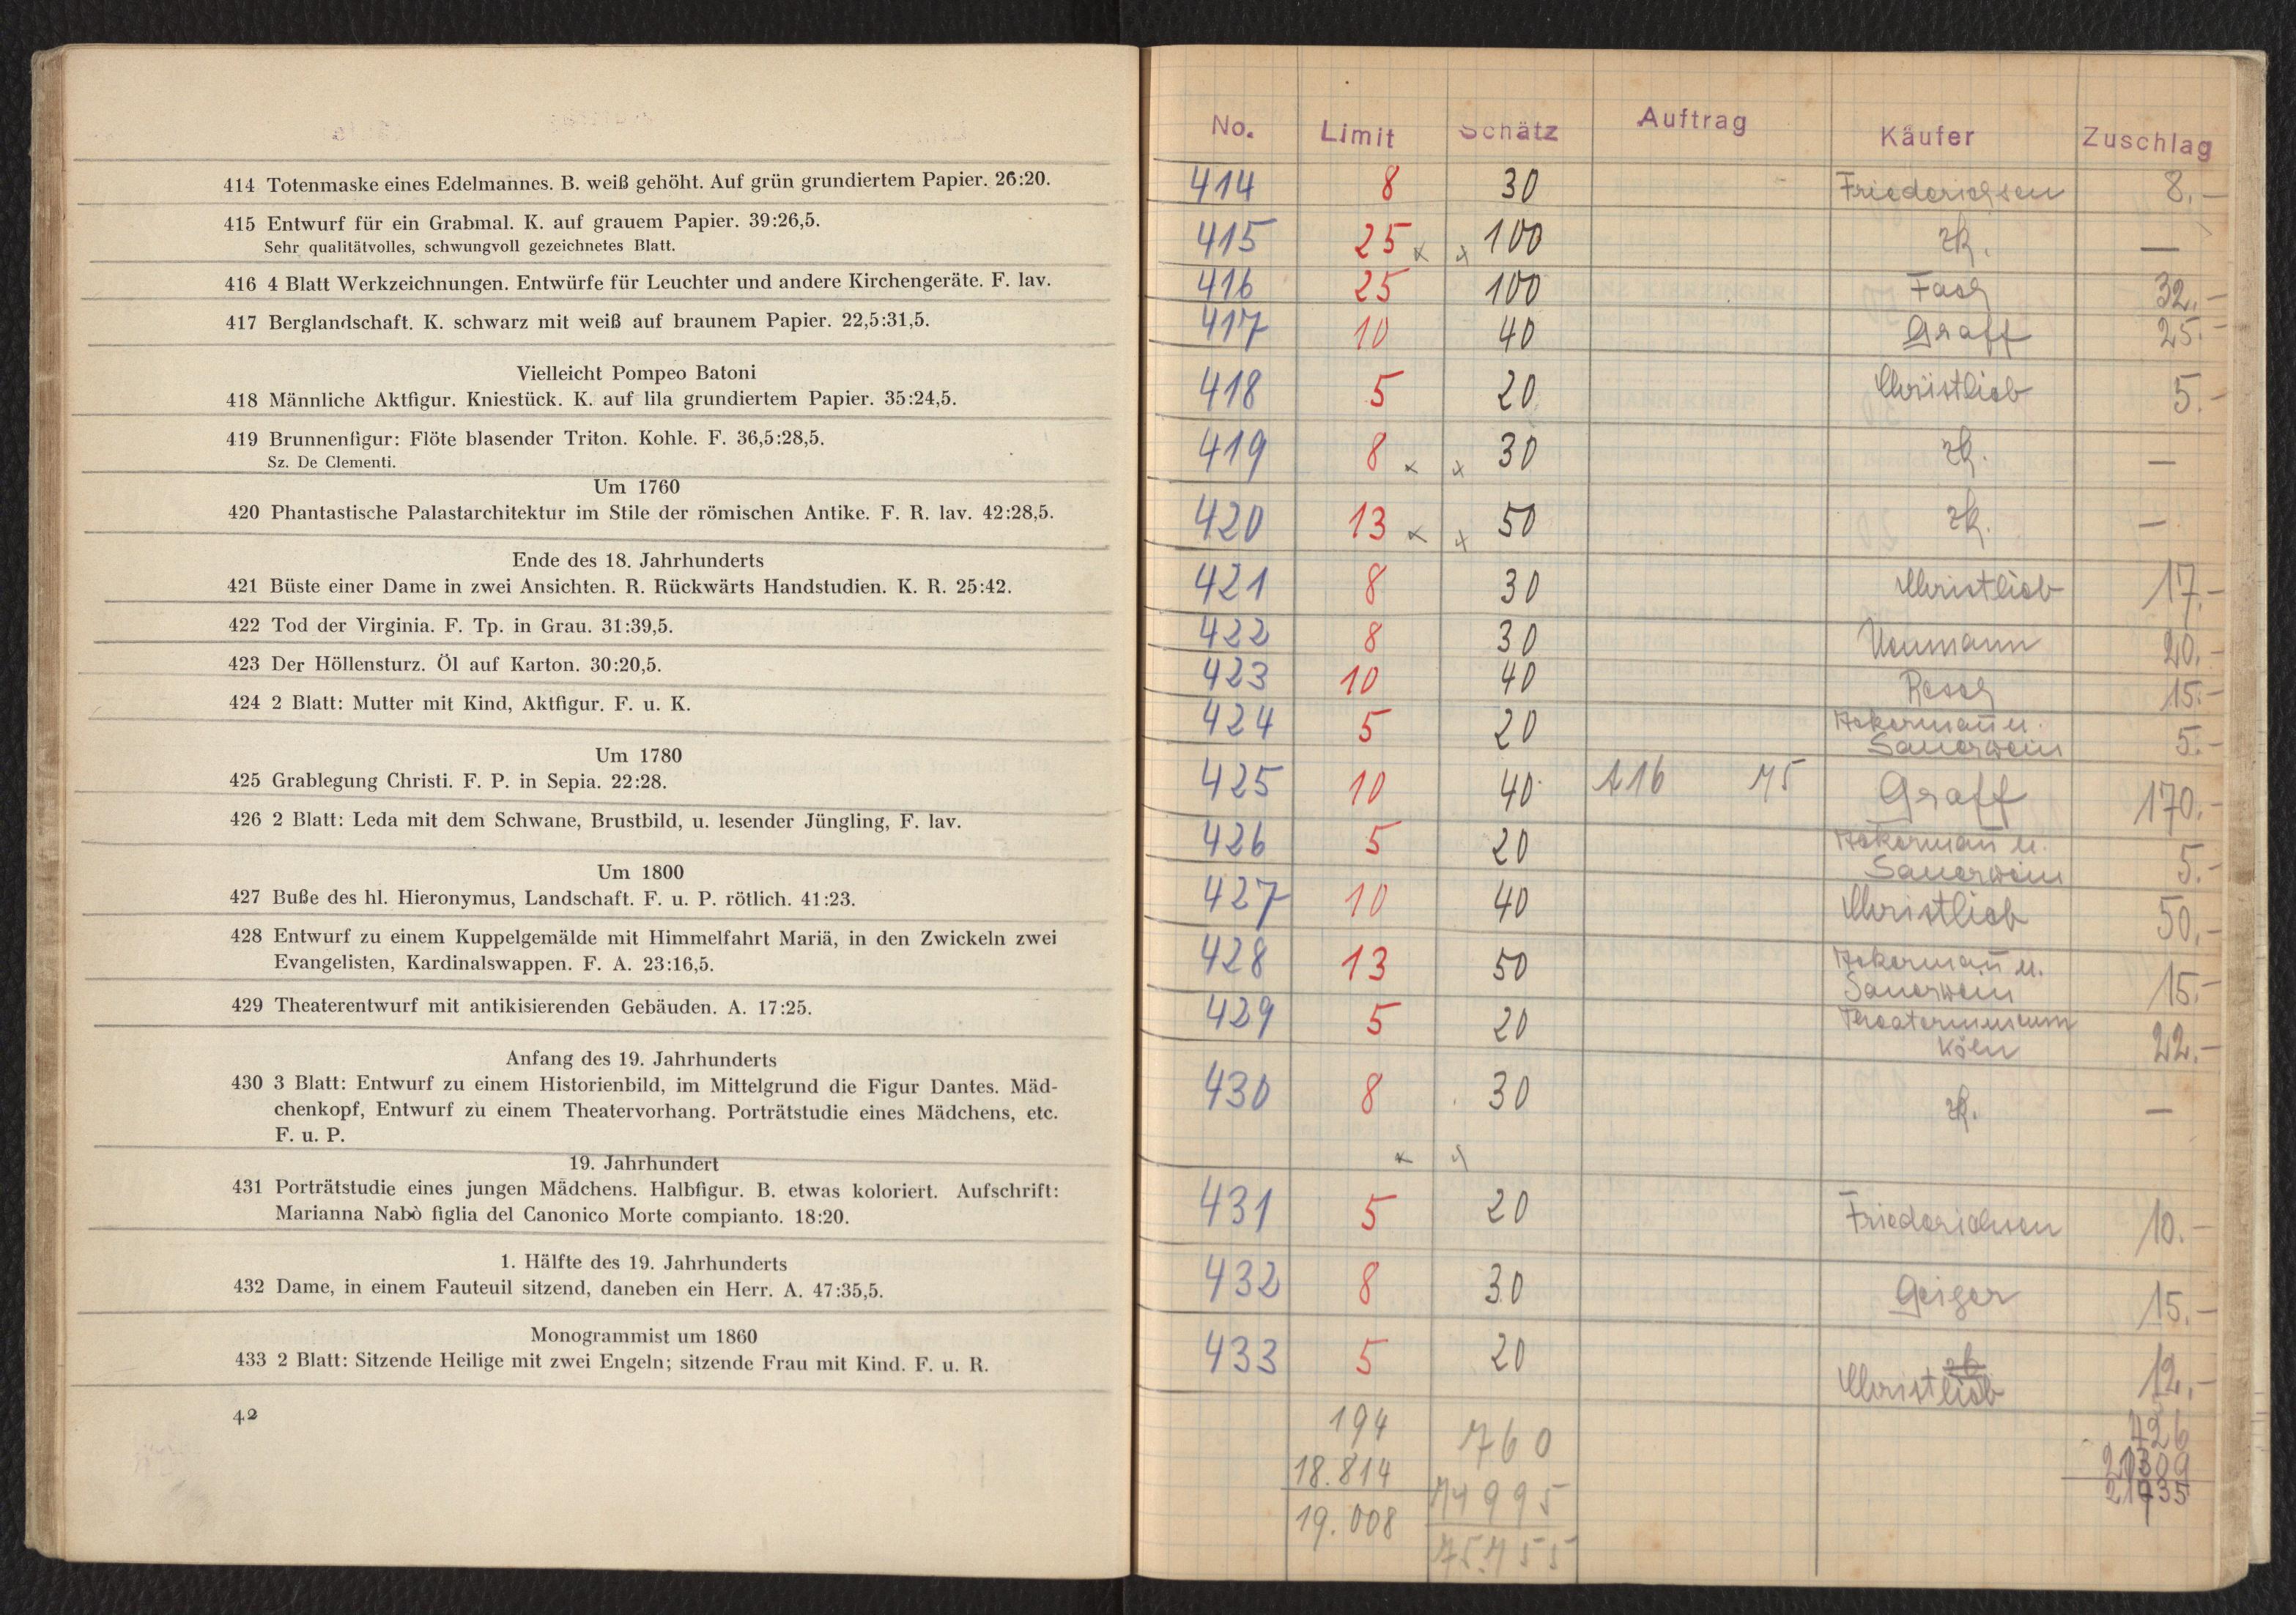 414 Totenmaske eines Edelmannes. B. weiß gehöht. Auf grün grundiertem Papier. 26:20.
415 Entwurf für ein Grabmal. K. auf grauem Papier. 39:26,5.
Sehr qualitätvolles, schwungvoll gezeichnetes Blatt.
416 4 Blatt Werkzeichnungen. Entwürfe für Leuchter und andere Kirchengeräte. F. lav.
417 Berglandschaft. K. schwarz mit weiß auf braunem Papier. 22,5:31,5.
Vielleicht Pompeo Batoni
418 Männliche Aktfigur. Kniestück. K. auf lila grundiertem Papier. 35:24,5.
419 Brunnenfigur: Flöte blasender Triton. Kohle. F. 36,5:28,5.
Sz. De Clementi.
Um 1760
420 Phantastische Palastarchitektur im Stile der römischen Antike. F. R. lav. 42:28,5.
Ende des 18. Jahrhunderts
421 Büste einer Dame in zwei Ansichten. R. Rückwärts Handstudien. K. R. 25:42.
422 Tod der Virginia. F. Tp. in Grau. 31:39,5.
423 Der Höllensturz. Öl auf Karton. 30:20,5.
424 2 Blatt: Mutter mit Kind, Aktfigur. F. u. K.
Um 1780
425 Grablegung Christi. F. P. in Sepia. 22:28.
426 2 Blatt: Leda mit dem Schwane, Brustbild, u. lesender Jüngling, F. lav.
Um 1800
427 Buße des hl. Hieronymus, Landschaft. F. u. P. rötlich. 41:23.
428 Entwurf zu einem Kuppelgemälde mit Himmelfahrt Mariä, in den Zwickeln zwei
Evangelisten, Kardinalswappen. F. A. 23:16,5.
429 Theaterentwurf mit antikisierenden Gebäuden. A. 17:25.
Anfang des 19. Jahrhunderts
430 3 Blatt: Entwurf zu einem Historienbild, im Mittelgrund die Figur Dantes. Mäd-
chenkopf, Entwurf zu einem Theatervorhang. Porträtstudie eines Mädchens, etc.
F. u. P.
19. Jahrhundert
431 Porträtstudie eines jungen Mädchens. Halbfigur. B. etwas koloriert. Aufschrift:
Marianna Nabò figlia del Canonico Morte compianto. 18:20.
1. Hälfte des 19. Jahrhunderts
432 Dame, in einem Fauteuil sitzend, daneben ein Herr. A. 47:35,5.
Monogrammist um 1860
433 2 Blatt: Sitzende Heilige mit zwei Engeln; sitzende Frau mit Kind. F. u. R.
42
No. Limit Schätz Auftrag Käufer Zuschlag
414 8 30 Friederichsen 8.–
415 25 x x 100 zk. –
416 25 100 Fasch 32.–
417 10 40 Graff 25.–
418 5 20 Christlieb 5.–
419 8 x x 30 zk. –
420 13 x x 50 zk. –
421 8 30 Christlieb 17.–
422 8 30 Neumann 20.–
423 10 40 Resch 15.–
424 5 20 Ackermann u.
Sauerwein 5.–
425 10 40 A16 75 Graff 170.–
426 5 20 Ackermann u.
Sauerwein 5.–
427 10 40 Christlieb 50.–
428 13 50 Ackermann u.
Sauerwein 15.–
429 5 20 Theatermuseum
Köln 22.–
430 8 30 zk. –
x x
431 5 20 Friederichsen 10.–
432 8 30 Geiger 15.–
433 5 20 zk
Christlieb 12.–
194 760 426
18.814 74995 21309
19.008 75.755 21735